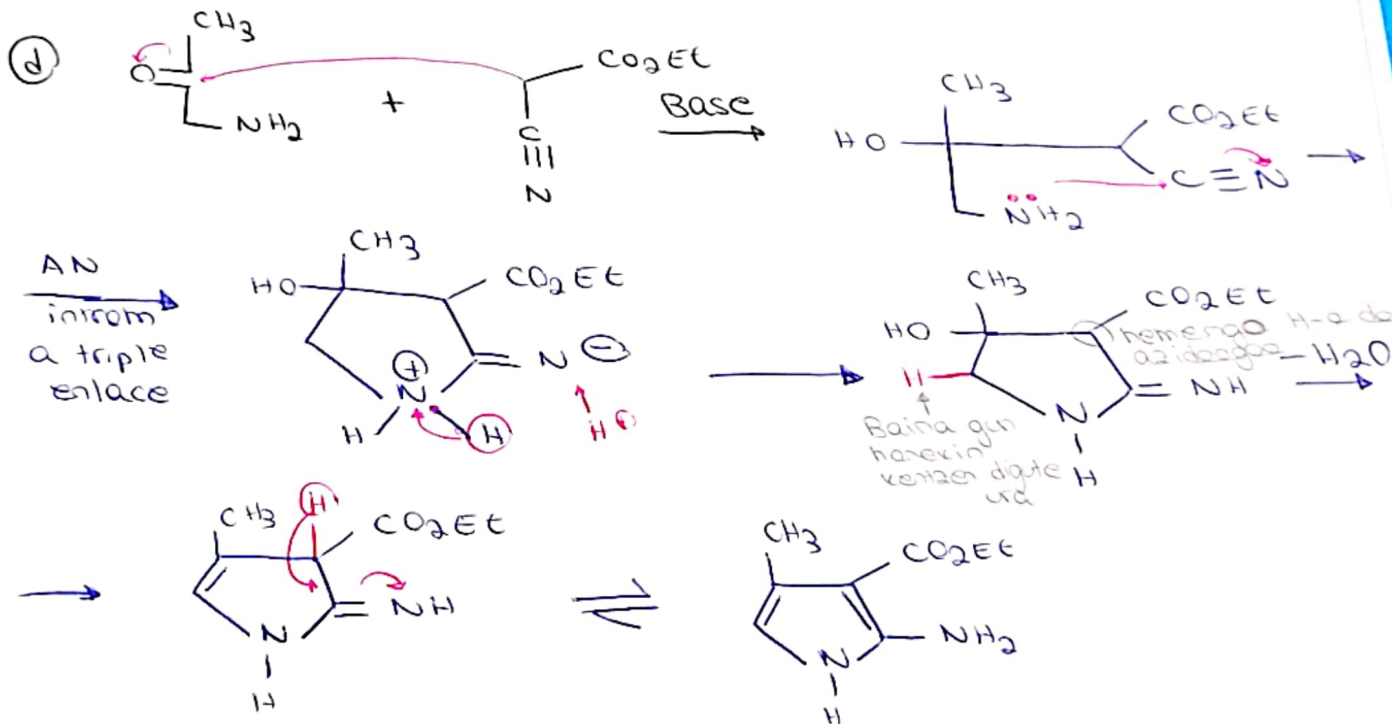 d
CH3
O
NH2
+
CO2Et
C
N
Base
CH3
HO
CO2Et
C ≡ N
NH2
AN
a triple
enlace
CH3
HO
CO2Et
N ⊖
⊕
N
H
H
H⊕
CH3
HO
CO2Et
hemengo H-a da
azidoagoa
H
NH
N
H
- H2O
Baina gun
harekin
kentzen digute
ura
CH3
H
CO2Et
NH
N
H
CH3
CO2Et
NH2
N
H